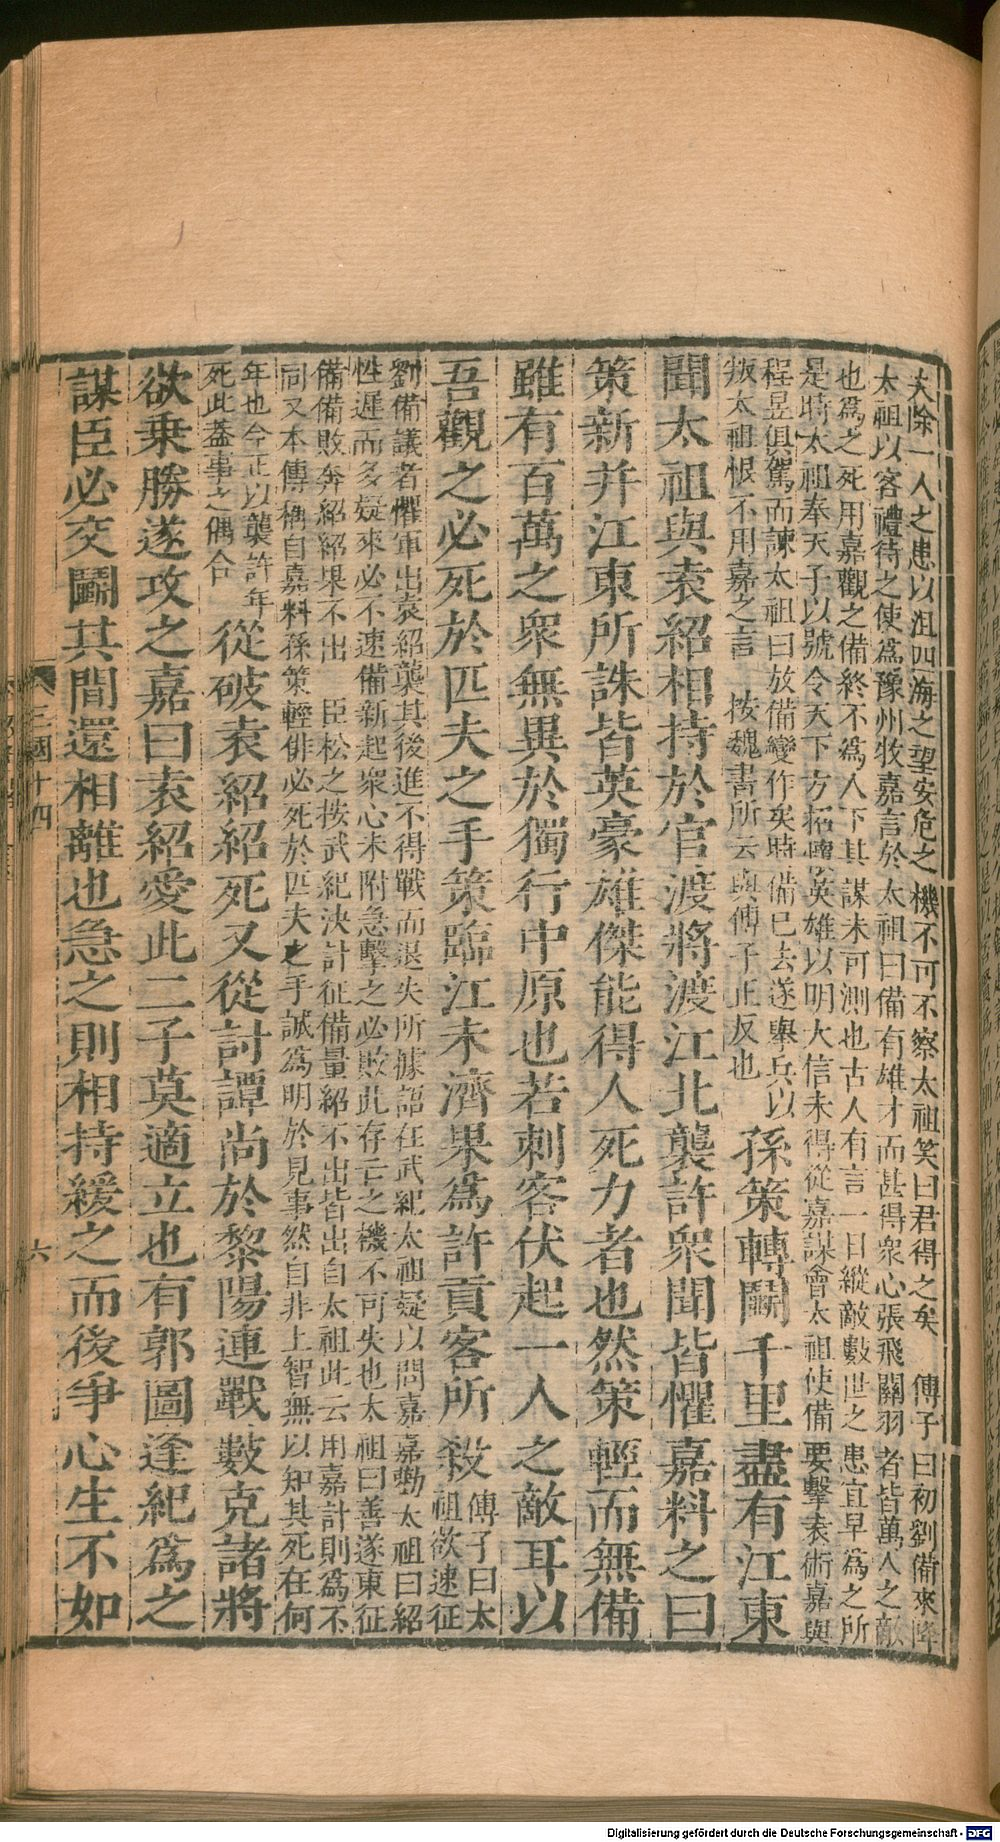 夫除一人之患以沮四海之望安危之機不可不察太祖笑曰君得之矣　傅子曰初劉備來降
太祖以客禮待之使爲豫州牧嘉言於太祖曰備有雄才而甚得衆心張飛關羽者皆萬人之敵
也爲之死用嘉觀之備終不爲人下其謀未可測也古人有言一日縱敵數世之患宜早爲之所
是時太祖奉天子以號令天下方招懷英雄以明大信未得從嘉謀會太祖使備要擊袁術嘉與
程昱俱駕而諫太祖曰放備變作矣時備已去遂舉兵以
叛太祖恨不用嘉之言　按魏書所云與傅子正反也
孫策轉鬭千里盡有江東
聞太祖與袁紹相持於官渡將渡江北襲許衆聞皆懼嘉料之曰
策新并江東所誅皆英豪雄傑能得人死力者也然策輕而無備
雖有百萬之衆無異於獨行中原也若刺客伏起一人之敵耳以
吾觀之必死於匹夫之手策臨江未濟果爲許貢客所殺
傅子曰太
祖欲速征
劉備議者懼軍出袁紹襲其後進不得戰而退失所據語在武紀太祖疑以問嘉嘉勸太祖曰紹
性遲而多疑來必不速備新起衆心未附急擊之必敗此存亡之機不可失也太祖曰善遂東征
備備敗奔紹紹果不出　臣松之按武紀決計征備量紹不出皆出自太祖此云用嘉計則爲不
同又本傳稱自嘉料孫策輕佻必死於匹夫之手誠爲明於見事然自非上智無以知其死在何
年也今正以襲許年
死此蓋事之偶合
從破袁紹紹死又從討譚尚於黎陽連戰數克諸將
欲乗勝遂攻之嘉曰袁紹愛此二子莫適立也有郭圖逢紀爲之
謀臣必交鬭其間還相離也急之則相持緩之而後爭心生不如
三國十四
六
Digitalisierung gefördert durch die Deutsche Forschungsgemeinschaft - DFG